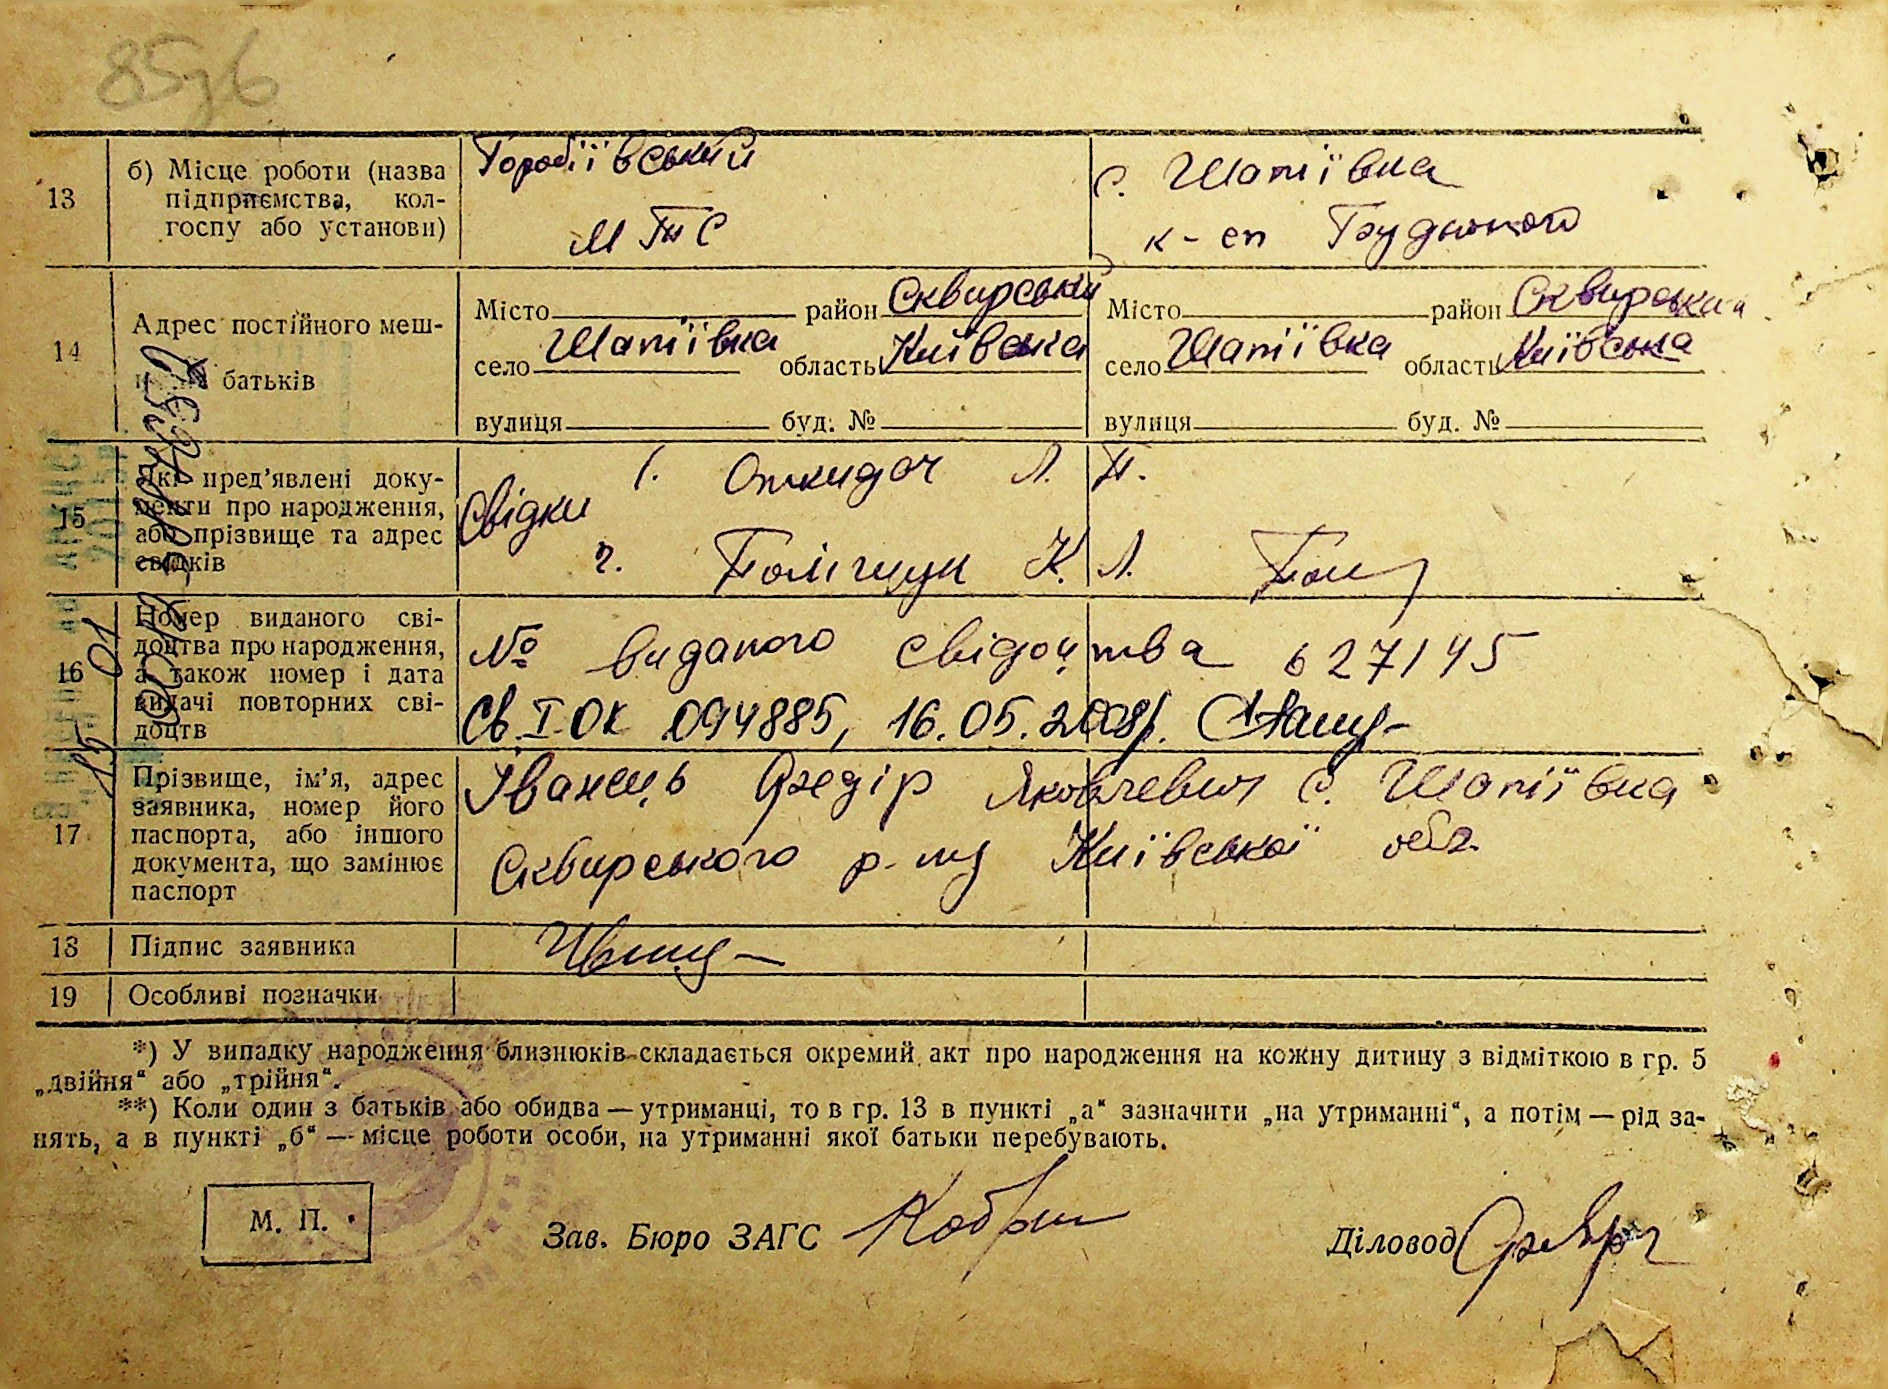 13
б) Місце роботи (назва
підприємства, кол-
госпу або установи)
Горобіївський
МТС
с. Шапіївка
к-сп
14
Адрес постійного меш-
батьків
Місто район Сквирський
село Шапіївка область Київська
вулиця буд. №
Місто район Сквирський
село Шапіївка область Київська
вулиця буд. №
15
Які пред’явлені доку-
менти про народження,
або прізвище та адрес
свідків
Свідки
1. Откидач Л. П.
2. Поліщук К. Л.
16
Номер виданого сві-
доцтва про народження,
а також номер і дата
видачі повторних сві-
доцтв
№ виданого свідоцтва 627145
Св. І-ОК 094885, 16.05.2008р.
17
Прізвище, ім’я, адрес
заявника, номер його
паспорта, або іншого
документа, що замінює
паспорт
Іванець Федір Яковлевич с. Шапіївка
Сквирського р-ну Київської обл.
18
Підпис заявника
19
Особливі позначки
*) У випадку народження близнюків складається окремий акт про народження на кожну дитину з відміткою в гр. 5
„двійня“ або „трійня“.
**) Коли один з батьків або обидва — утриманці, то в гр. 13 в пункті „а“ зазначити „на утриманні“, а потім — рід за-
нять, а в пункті „б“ — місце роботи особи, на утриманні якої батьки перебувають.
М. П.
Зав. Бюро ЗАГС
Діловод